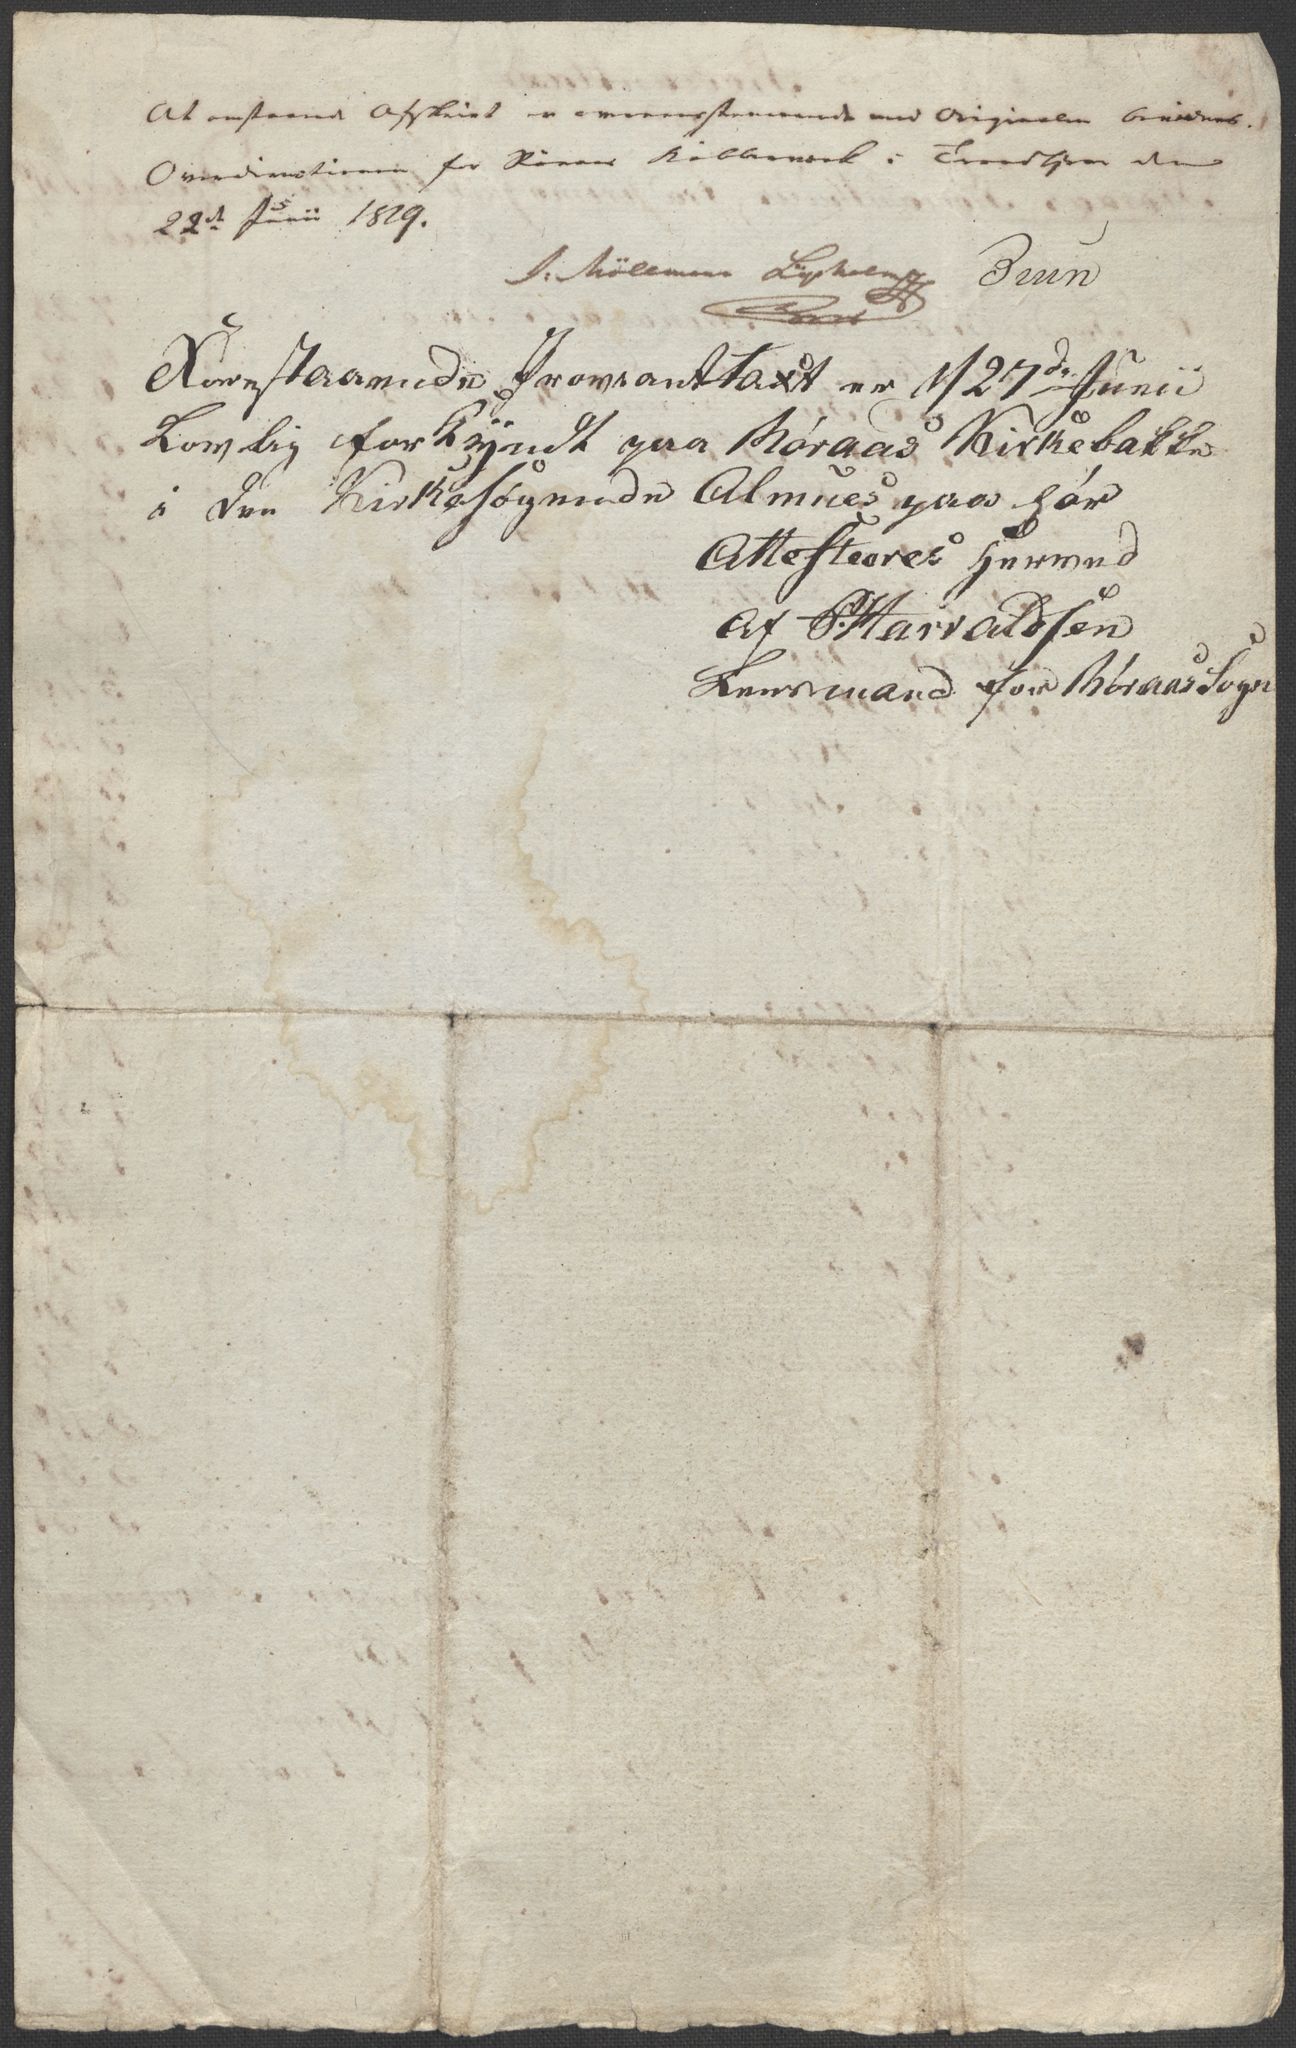 At omstaaende Afskrivt er overeensstemmende med Originalen bevidnes.
Overdirectionen for Röraas Kobberverk i Trondhjem den
22de Junii 1819.
J. Möllmann Lysholm Bruun
Forestaaende Proviant Taxt er d 27de Junii
Lovlig forkÿndt paa Röraas Kirkebakke
i den Kirkesögende Almues paa hör
Attesteeres herved
Af P. Harraldsen
Lensmand for Röraas Sogn